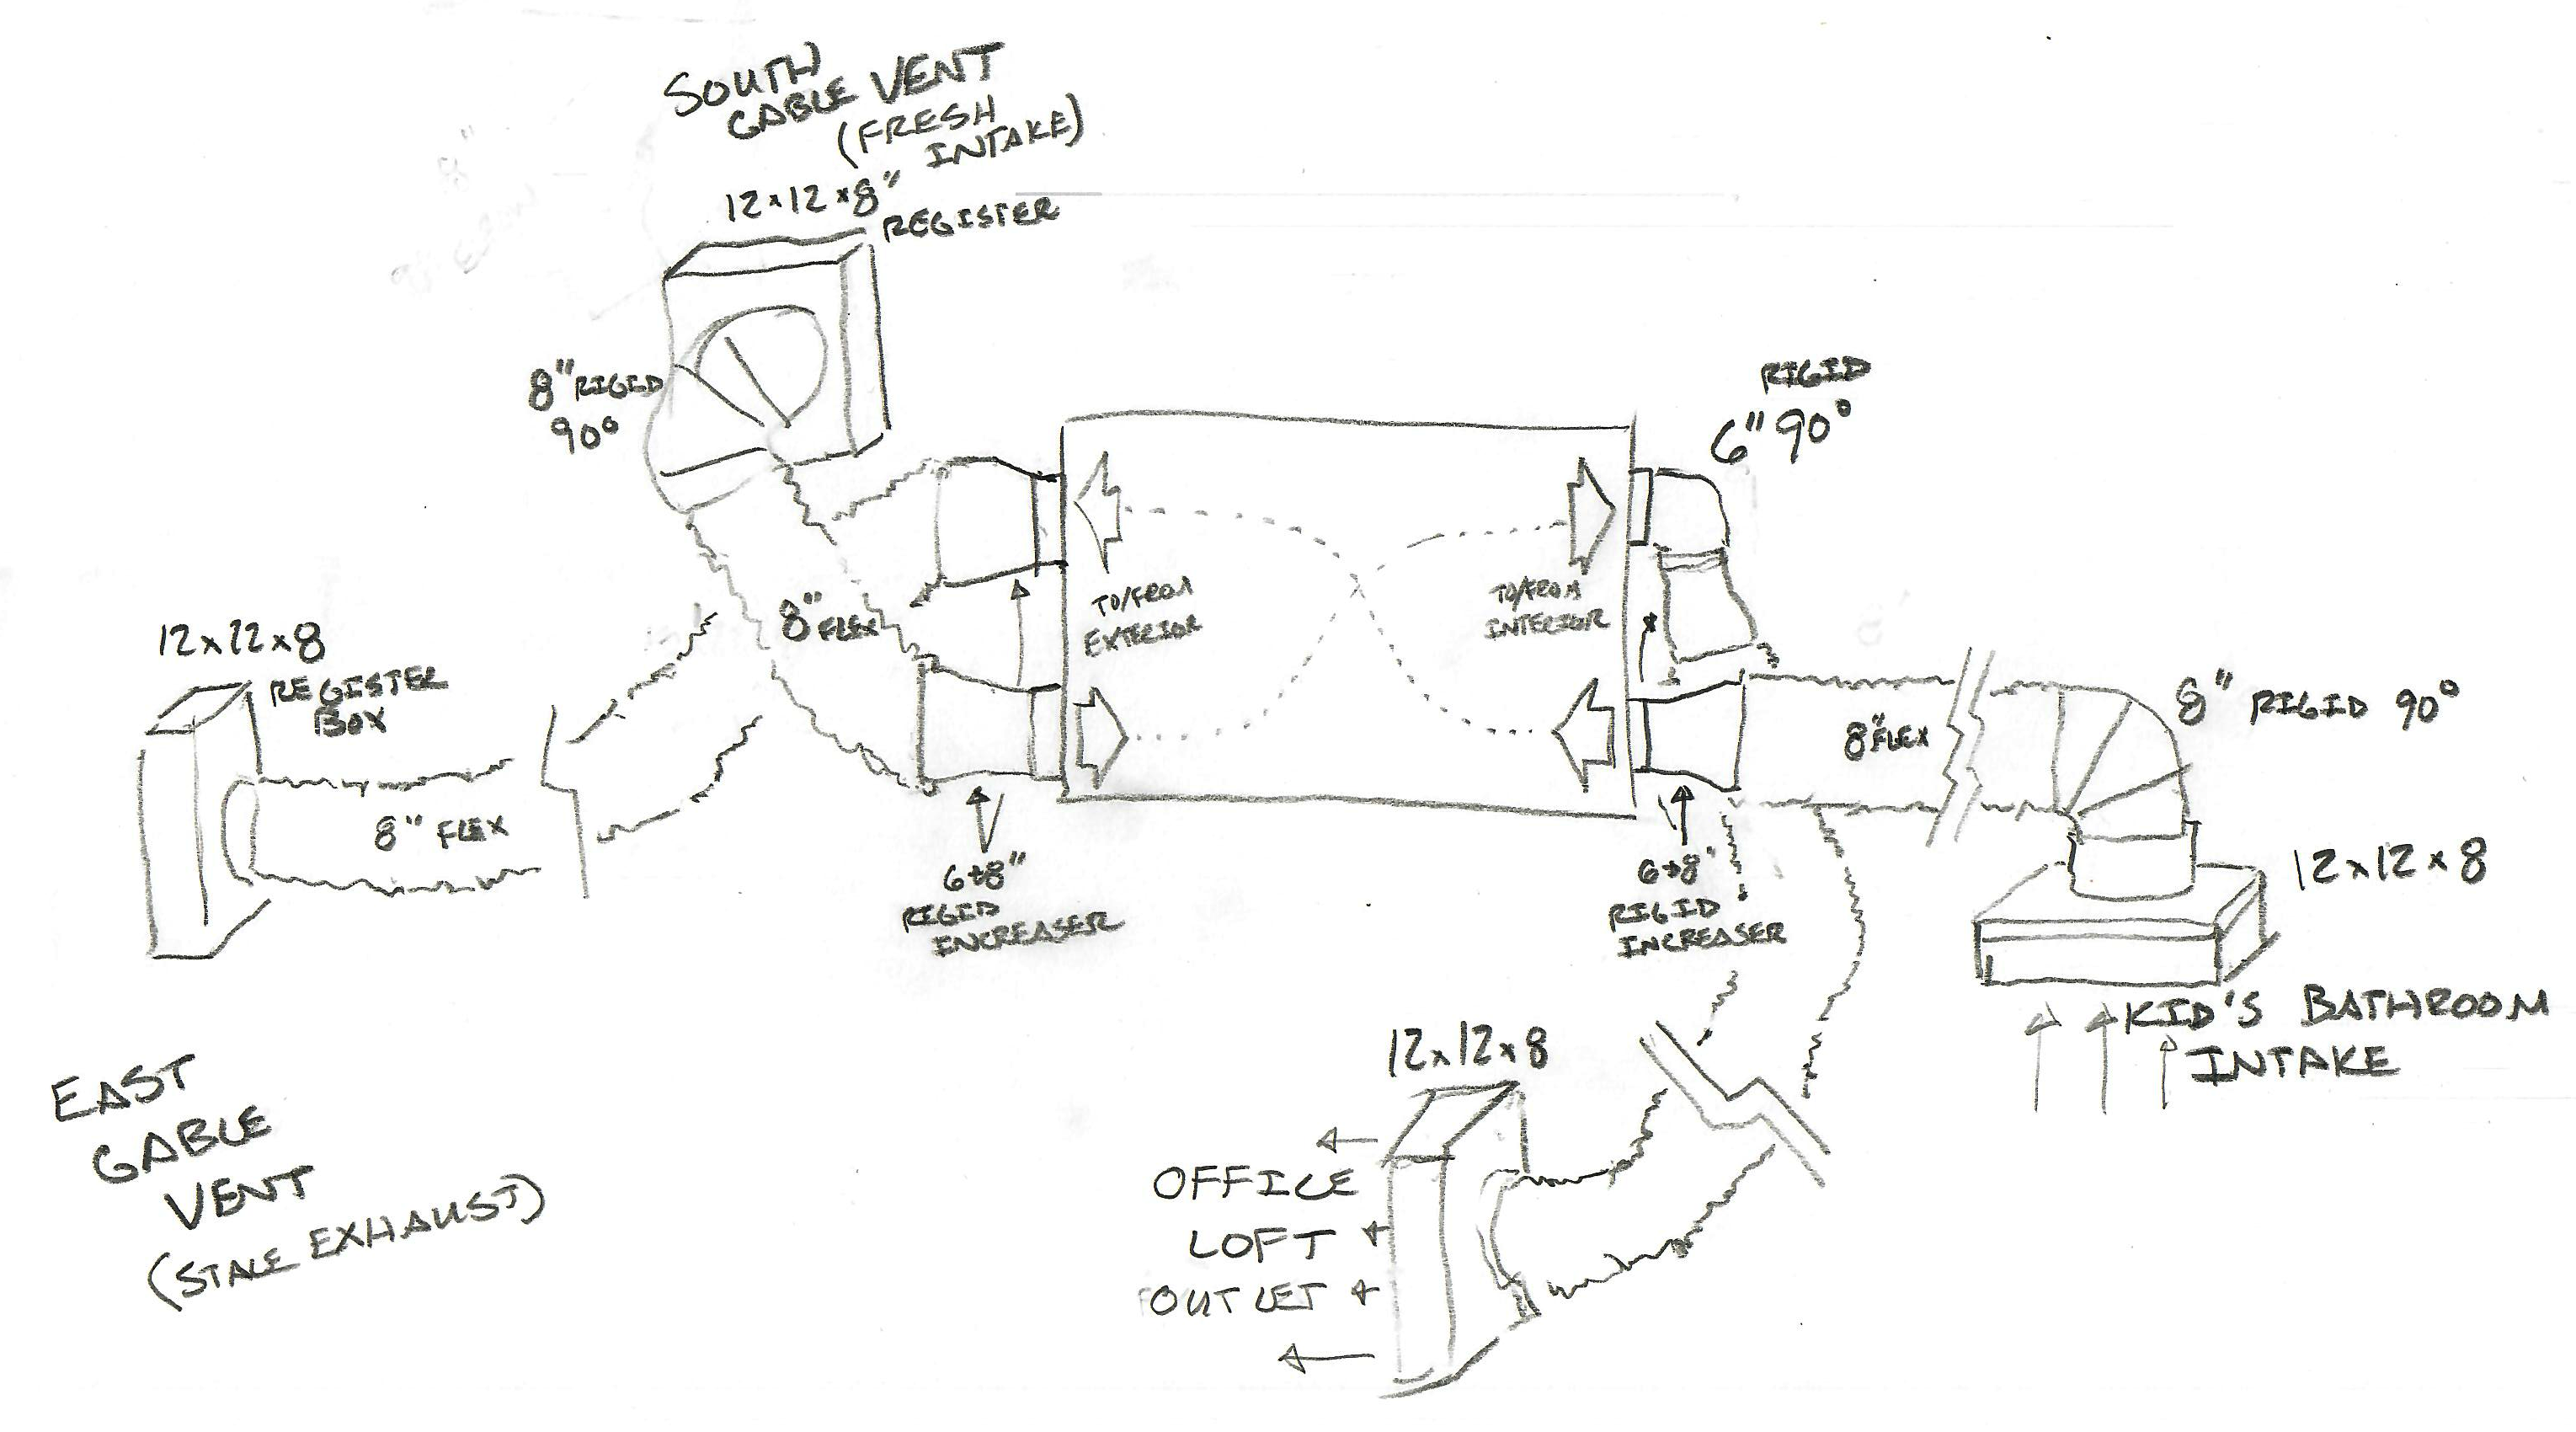 SOUTH
GABLE VENT
(FRESH
INTAKE)
12x12x8"
REGISTER
8" RIGID
90°
RIGID
6" 90°
TO/FROM
EXTERIOR
TO/FROM
INTERIOR
8" FLEX
12x12x8
REGISTER
BOX
8" FLEX
8" FLEX
8" RIGID 90°
6→8"
RIGID
INCREASER
6→8"
RIGID
INCREASER
12x12x8
KID'S BATHROOM
INTAKE
12x12x8
OFFICE
LOFT
OUTLET
EAST
GABLE
VENT
(STALE EXHAUST)